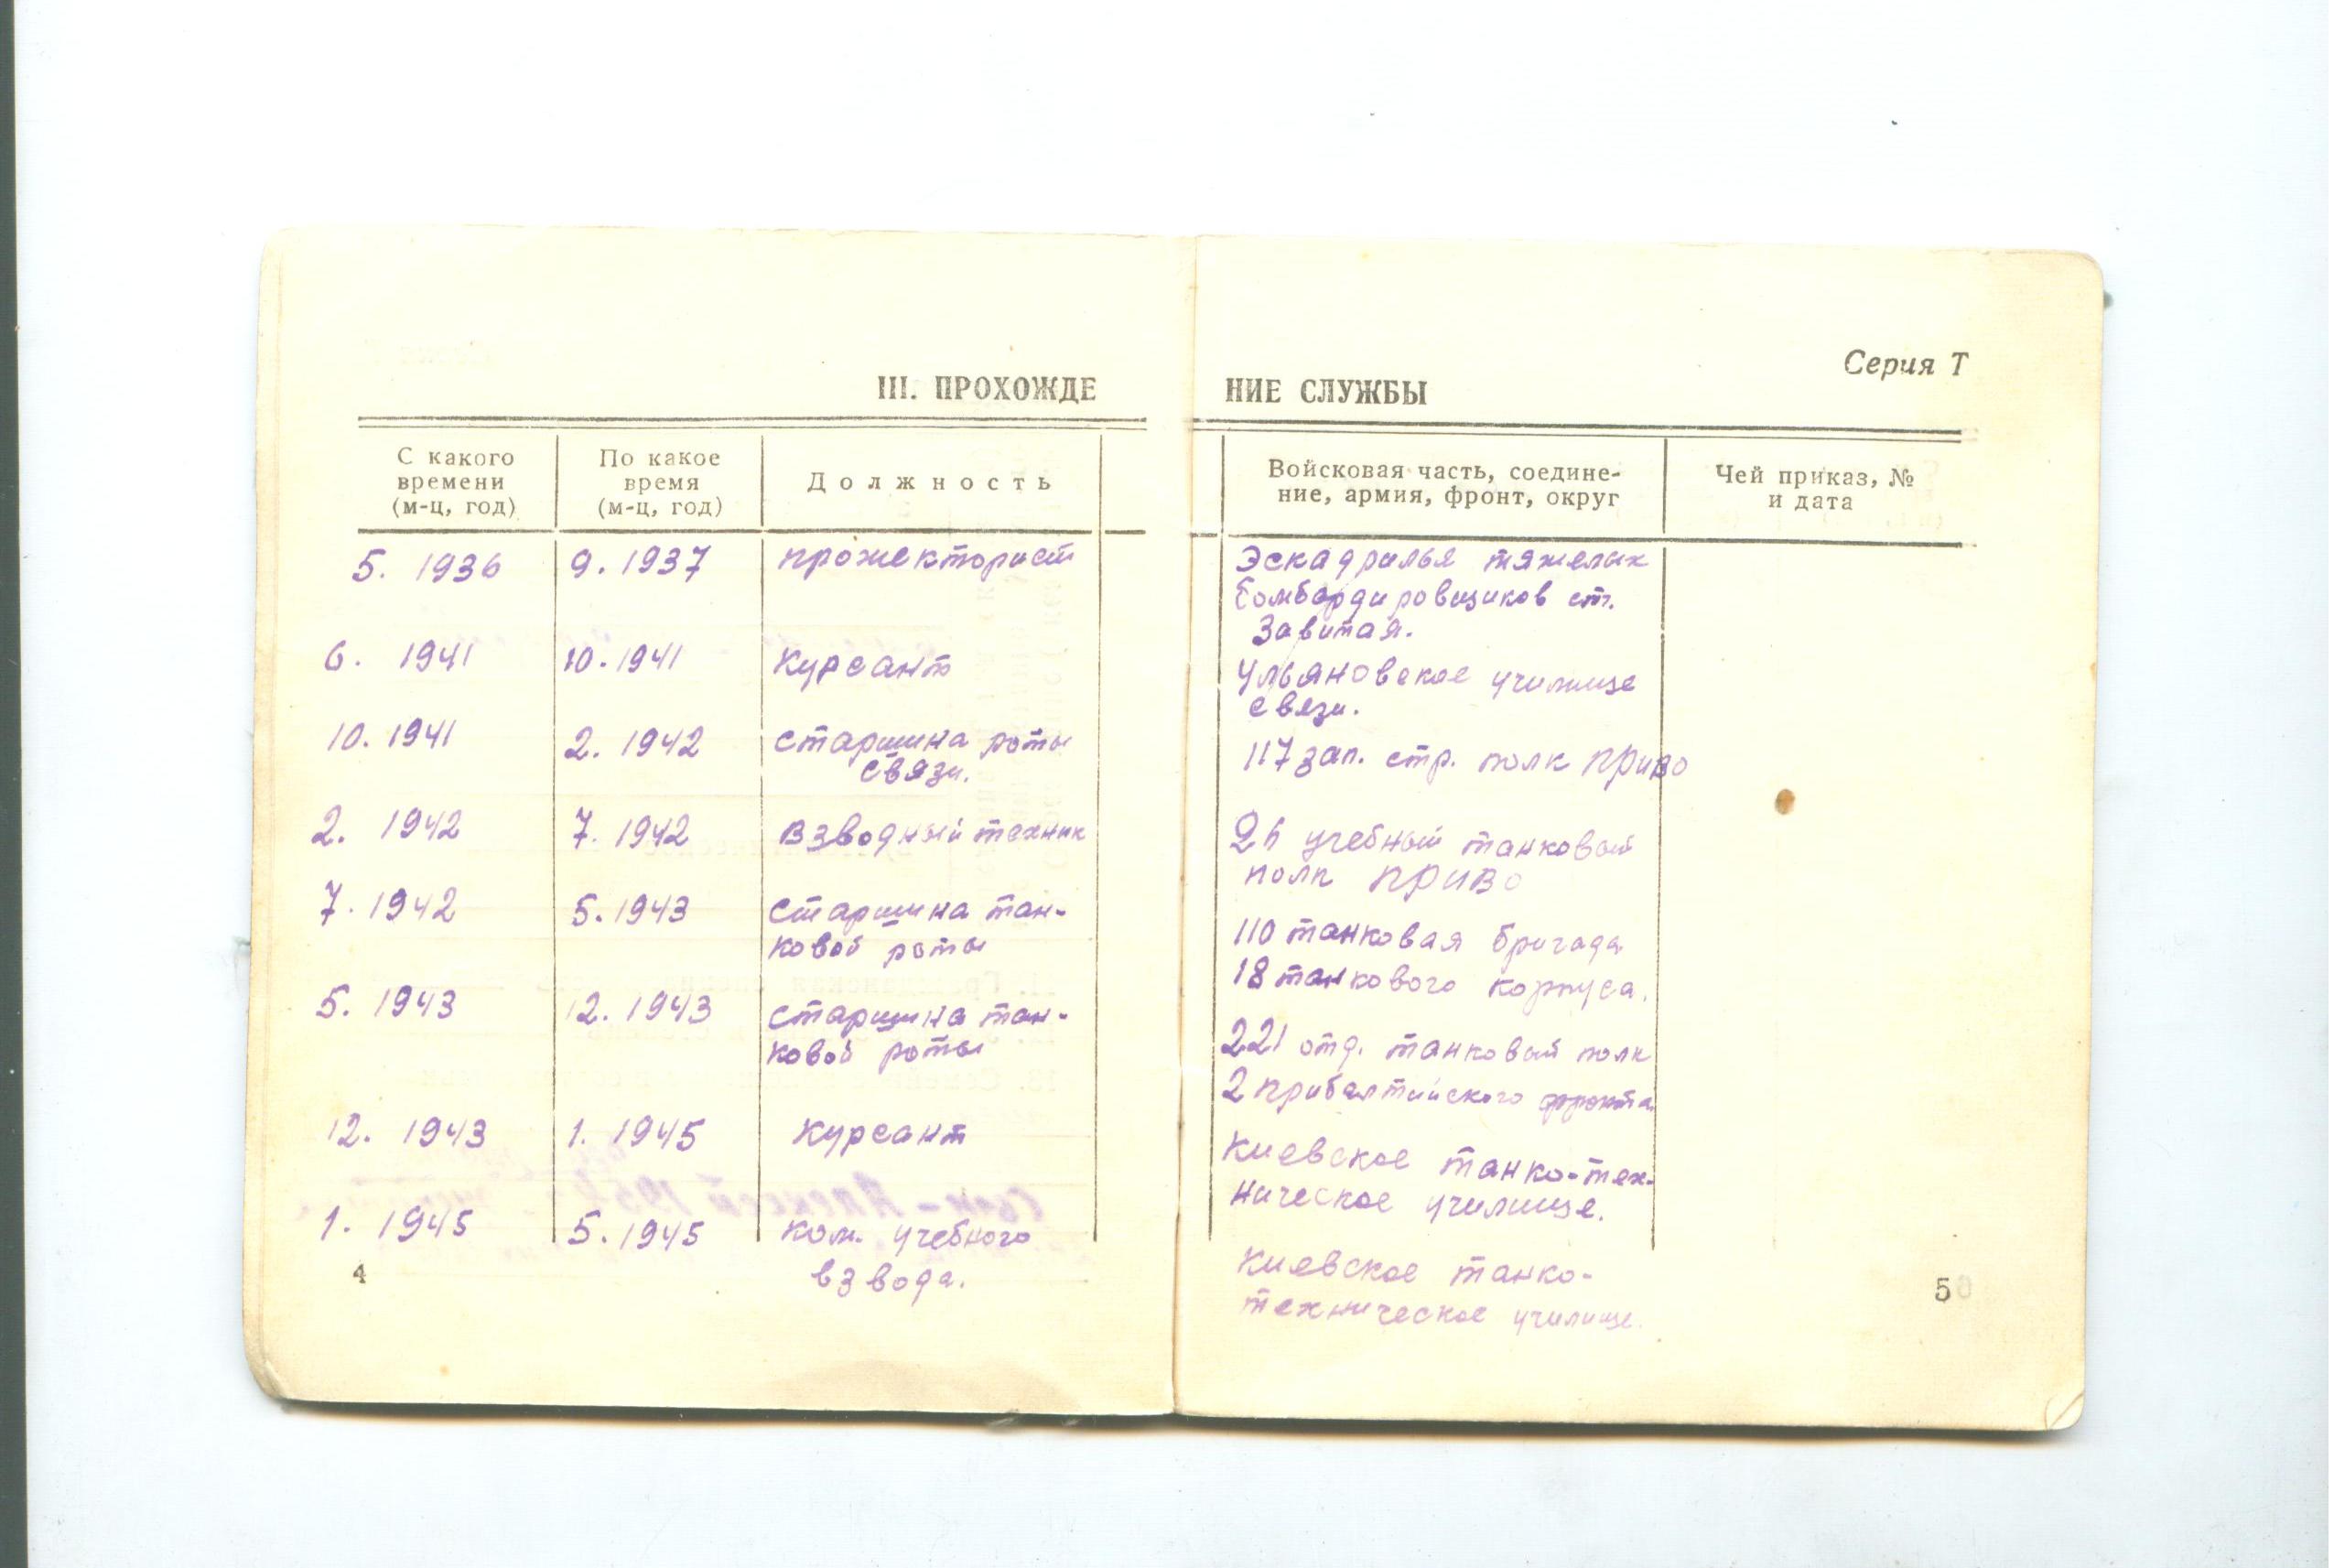 Серия Т
III. ПРОХОЖДЕ НИЕ СЛУЖБЫ
С какого времени (м-ц, год)
По какое время (м-ц, год)
Должность
Войсковая часть, соедине-
ние, армия, фронт, округ
Чей приказ, №
и дата
5. 1936 9. 1937 прожекторист Эскадрилья тяжелых
бомбардировщиков ст.
Завитая.
6. 1941 10. 1941 курсант Ульяновское училище
связи.
10. 1941 2. 1942 старшина роты 117 зап. стр. полк приво
связи.
2. 1942 7. 1942 взводный техник учебный танковый
полк приво
7. 1942 5. 1943 старшина тан- 110 танковая бригада
ковой роты 18 танкового корпуса.
5. 1943 12. 1943 старшина тан- 221 отд. танковый полк
ковой роты 2 прибалтийского фронта
12. 1943 1. 1945 курсант Киевское танко-тех-
ническое училище.
1. 1945 5. 1945 ком. учебного Киевское танко-
взвода. техническое училище.
4
5